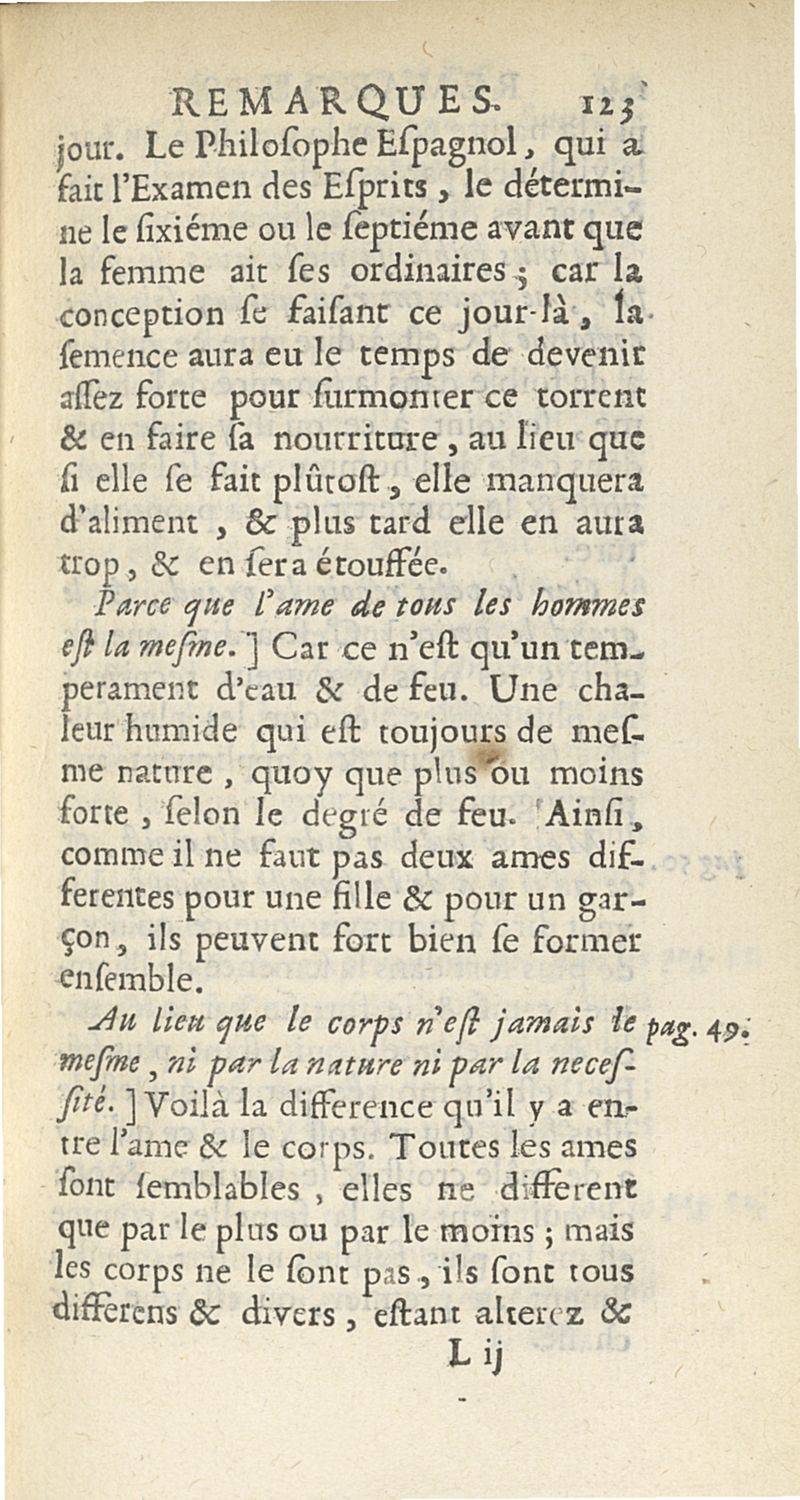 REMARQUES. 123
jour. Le Philoſophe Eſpagnol, qui a
fait l'Examen des Eſprits, le détermi-
ne le ſixiéme ou le ſeptiéme avant que
la femme ait ſes ordinaires; car la
conception ſe faiſant ce jour-là, la
ſemence aura eu le temps de devenir
aſſez forte pour ſurmonter ce torrent
& en faire ſa nourriture, au lieu que
ſi elle ſe fait plûtoſt, elle manquera
d'aliment, & plus tard elle en aura
trop, & en ſera étouffée.
Parce que l'ame de tous les hommes
eſt la meſme.] Car ce n'eſt qu'un tem-
perament d'eau & de feu. Une cha-
leur humide qui eſt toujours de meſ-
me nature, quoy que plus ou moins
forte, ſelon le degré de feu. Ainſi,
comme il ne faut pas deux ames dif-
ferentes pour une fille & pour un gar-
çon, ils peuvent fort bien ſe former
enſemble.
Au lieu que le corps n'eſt jamais le pag. 49.
meſme, ni par la nature ni par la neceſ-
ſité.] Voilà la difference qu'il y a en-
tre l'ame & le corps. Toutes les ames
ſont ſemblables, elles ne different
que par le plus ou par le moins; mais
les corps ne le ſont pas, ils ſont tous
differens & divers, eſtant alterez &
L ij